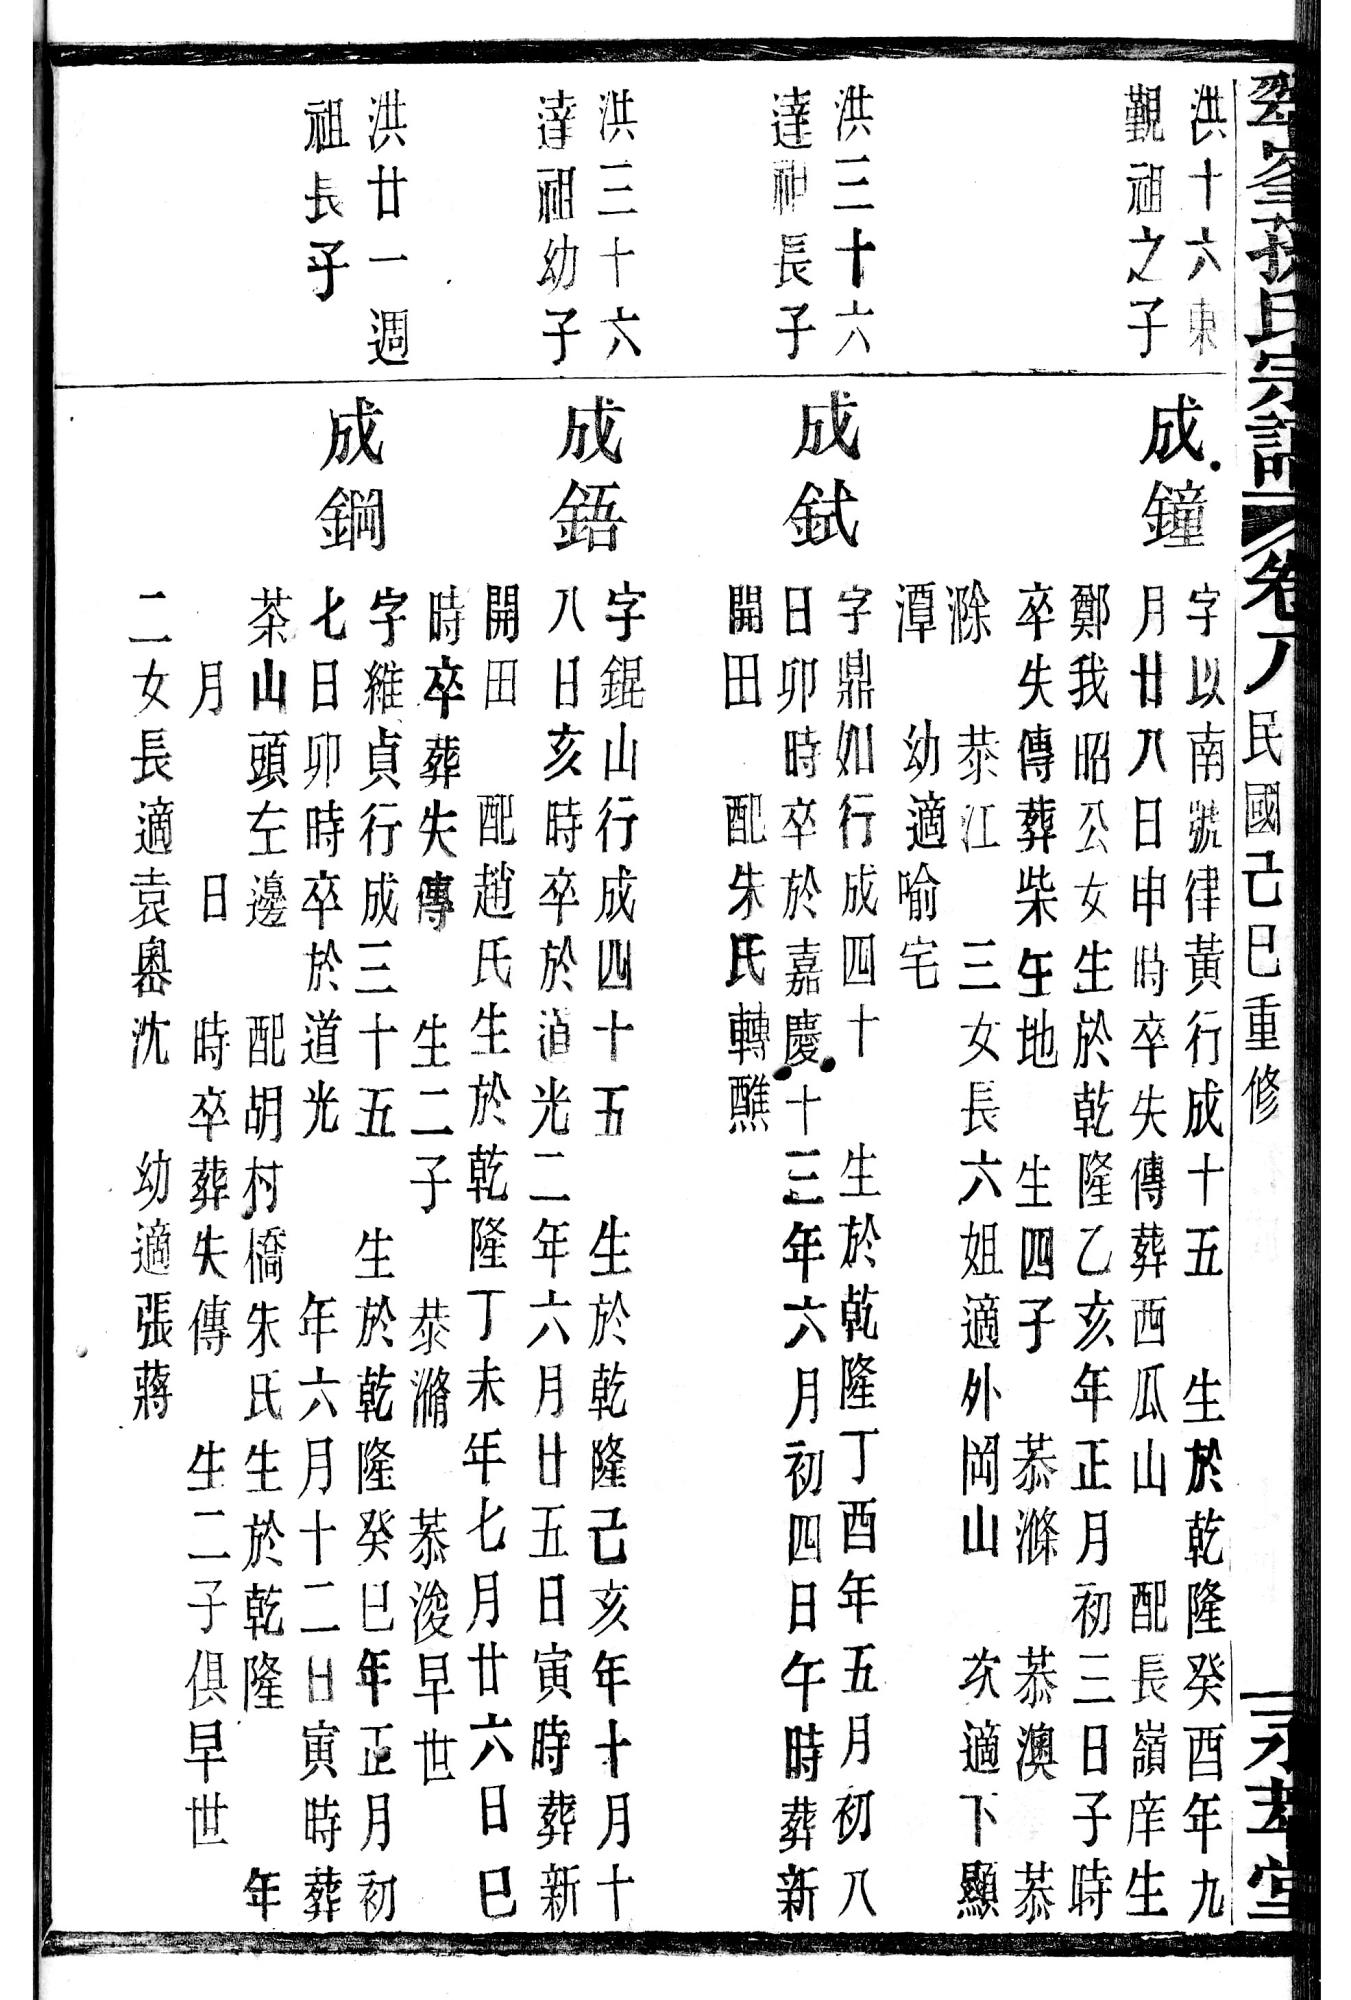 翠峯孫氏宗譜 卷八 民國己巳重修 永萃堂
洪十六東
觀祖之子
成鐘
字以南號律黃行成十五 生於乾隆癸酉年九
月廿八日申時卒失傳葬西瓜山 配長嶺庠生
鄭我昭公女生於乾隆乙亥年正月初三日子時
卒失傳葬柴午地 生四子 恭滌 恭澳 恭
滁 恭江 三女長六姐適外岡山 次適下顯
潭 幼適喻宅
洪三十六
達祖長子
成鉽
字鼎如行成四十 生於乾隆丁酉年五月初八
日卯時卒於嘉慶十三年六月初四日午時葬新
開田 配朱氏轉醮
洪三十六
達祖幼子
成鋙
字錕山行成四十五 生於乾隆己亥年十月十
八日亥時卒於道光二年六月廿五日寅時葬新
開田 配趙氏生於乾隆丁未年七月廿六日巳
時卒葬失傳 生二子 恭滫 恭浚早世
洪廿一週
祖長子
成鋼
字維貞行成三十五 生於乾隆癸巳年正月初
七日卯時卒於道光 年六月十二日寅時葬
茶山頭左邊 配胡村橋朱氏生於乾隆 年
月 日 時卒葬失傳 生二子俱早世
二女長適袁嶴沈 幼適張蔣